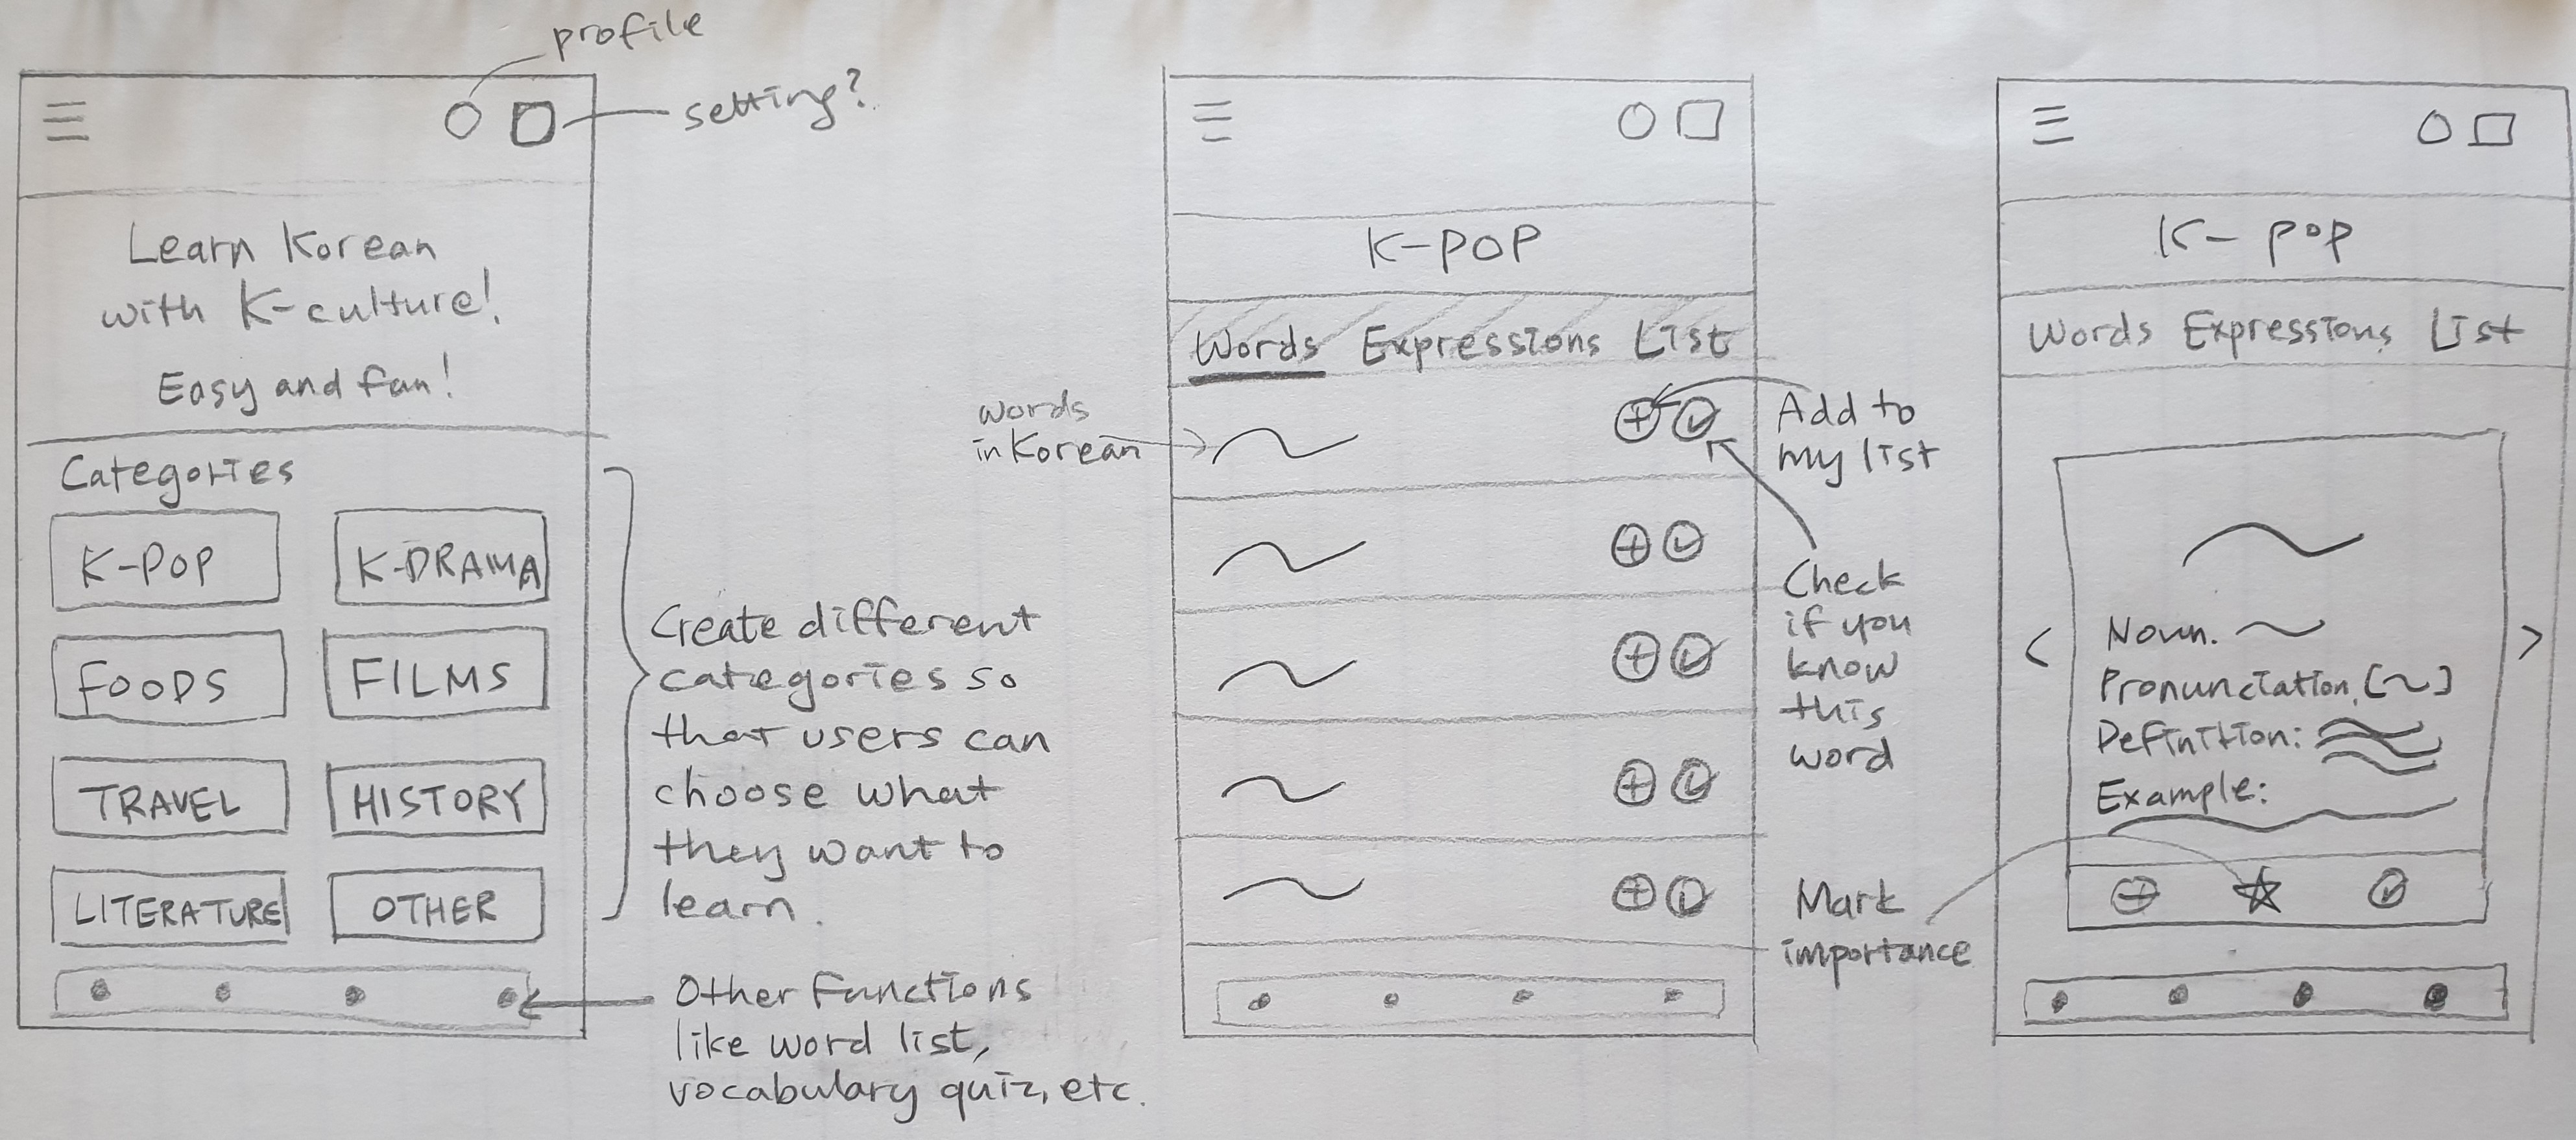 profile
setting?
Learn Korean
with K-culture!
Easy and fun!
Categories
K-POP
K-DRAMA
FOODS
FILMS
TRAVEL
HISTORY
LITERATURE
OTHER
Create different
categories so
that users can
choose what
they want to
learn.
Other functions
like word list,
vocabulary quiz, etc.
K-POP
Words Expressions List
words
in Korean
Add to
my list
Check
if you
know
this
word
Mark
importance
K-pop
Words Expressions List
<
Noun.
Pronunciation. [~]
Definition:
Example:
>